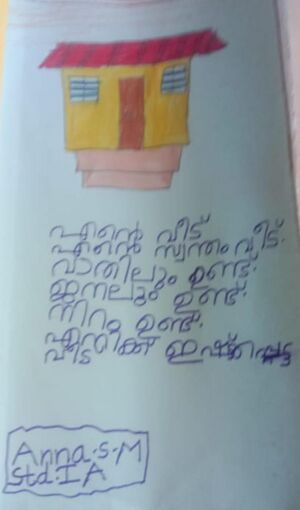 എന്റെ വീട്
എന്റെ സ്വന്തം വീട്.
വാതിലും ഉണ്ട്.
ജനലും ഉണ്ട്.
നിറം ഉണ്ട്.
എനിക്ക് ഇഷ്ടപ്പെട്ട
വീട്
Anna.S.M
Std.I A